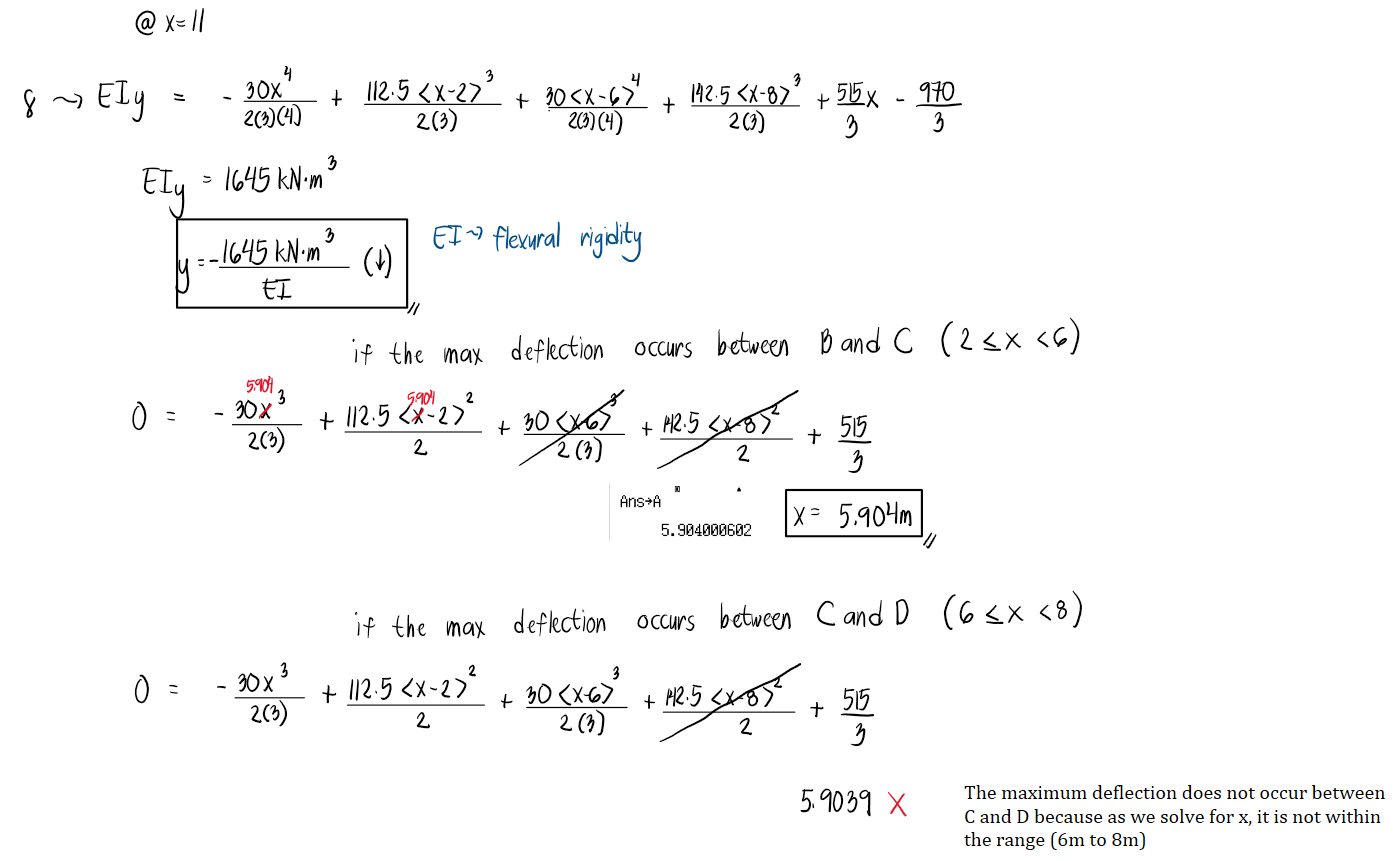 @ x=11
8 ⤳ EIy = - 30x⁴/2(3)(4) + 112.5<x-2>³/2(3) + 30<x-6>⁴/2(3)(4) + 142.5<x-8>³/2(3) + 515/3 x - 970/3
EIy = 1645 kN·m³
y = - 1645 kN·m³/EI (↓)
EI ⤳ flexural rigidity
if the max deflection occurs between B and C (2 ≤ x < 6)
5.904 5.904
0 = - 30x³/2(3) + 112.5<x-2>²/2 + 30<x-6>³/2(3) + 142.5<x-8>²/2 + 515/3
Ans→A
5.904000602
x = 5.904m
if the max deflection occurs between C and D (6 ≤ x < 8)
0 = - 30x³/2(3) + 112.5<x-2>²/2 + 30<x-6>³/2(3) + 142.5<x-8>²/2 + 515/3
5.9039 X
The maximum deflection does not occur between
C and D because as we solve for x, it is not within
the range (6m to 8m)